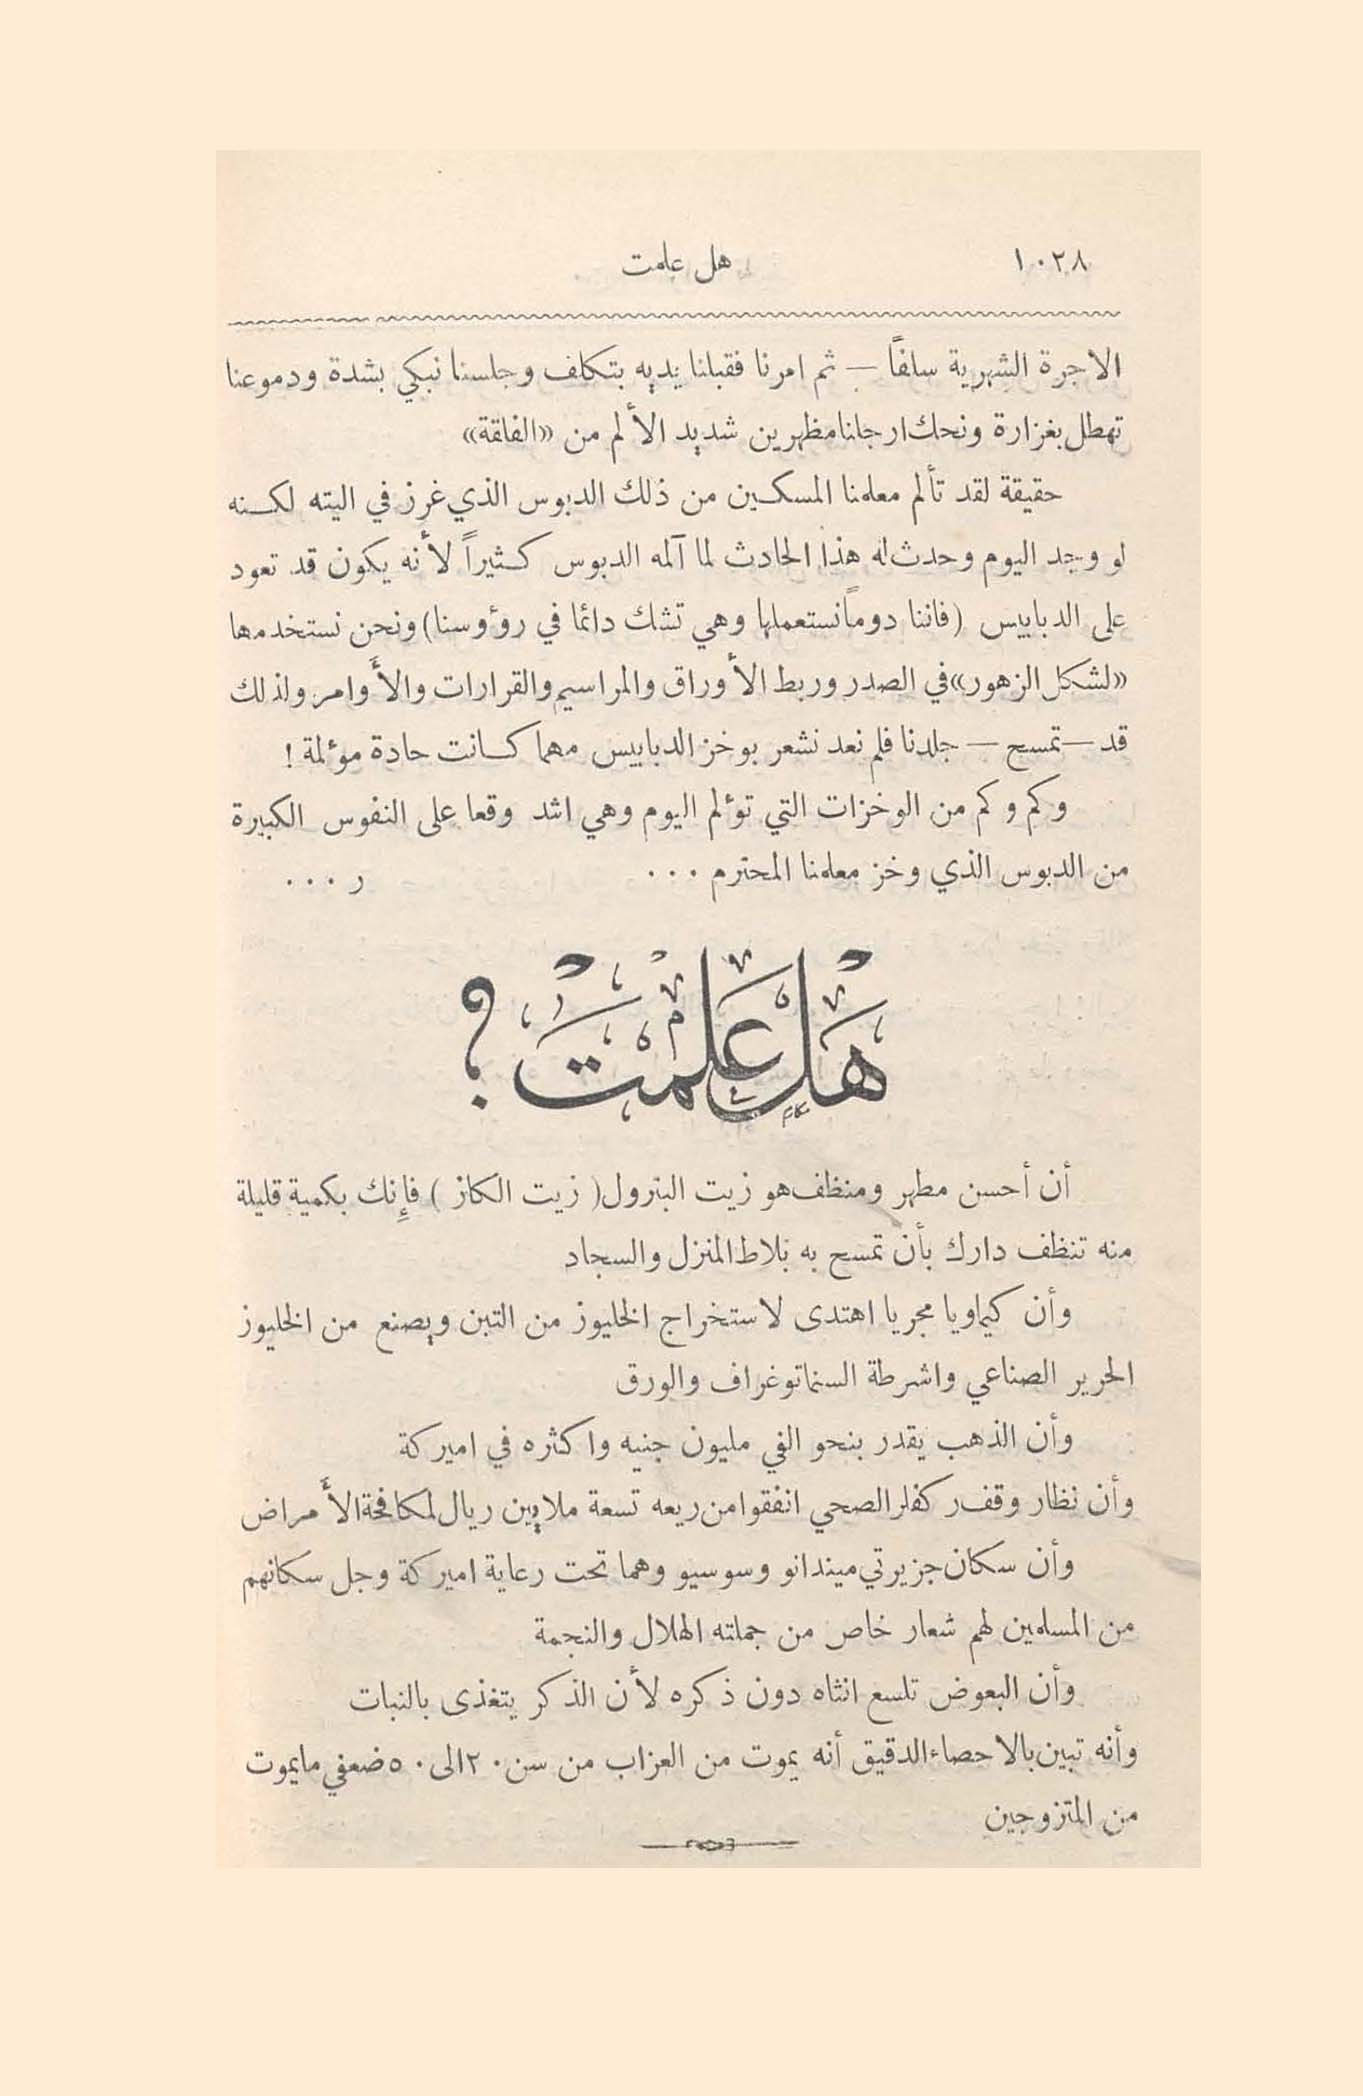 ١٠٢٨ هل علمت
الاجرة الشهرية سلفاً — ثم امرنا فقبلنا يديه بتكلف وجلسنا نبكي بشدة ودموعنا
تهطل بغزارة ونحك ارجلنا مظهرين شديد الألم من «الفلقة»
حقيقة لقد تألم معلمنا المسكين من ذلك الدبوس الذي غرز في اليته لكنه
لو وجد اليوم وحدث له هذا الحادث لما آلمه الدبوس كثيراً لأنه يكون قد تعود
على الدبابيس (فاننا دوماً نستعملها وهي تشك دائما في رؤوسنا) ونحن نستخدمها
«لشكل الزهور» في الصدر وربط الأوراق والمراسيم والقرارات والأوامر ولذلك
قد — تمسح — جلدنا فلم نعد نشعر بوخز الدبابيس مهما كانت حادة مؤلمة !
وكم وكم من الوخزات التي تؤلم اليوم وهي اشد وقعا على النفوس الكبيرة
من الدبوس الذي وخز معلمنا المحترم ... ر ...
هَلْ عَلِمْتَ ؟
أن أحسن مطهر ومنظف هو زيت البترول ( زيت الكاز ) فإنك بكمية قليلة
منه تنظف دارك بأن تمسح به بلاط المنزل والسجاد
وأن كيماويا مجريا اهتدى لاستخراج الخليوز من التبن ويصنع من الخليوز
الحرير الصناعي واشرطة السنماتوغراف والورق
وأن الذهب يقدر بنحو الفي مليون جنيه واكثره في اميركة
وأن نظار وقف ركفلر الصحي انفقوا من ريعه تسعة ملايين ريال لمكافحة الأمراض
وأن سكان جزيرتي ميندانو وسوسيو وهما تحت رعاية اميركة وجل سكانهم
من المسلمين لهم شعار خاص من جملته الهلال والنجمة
وأن البعوض تلسع انثاه دون ذكره لأن الذكر يتغذى بالنبات
وأنه تبين بالاحصاء الدقيق أنه يموت من العزاب من سن ٢٠ الى ٥٠ ضعفي ما يموت
من المتزوجين